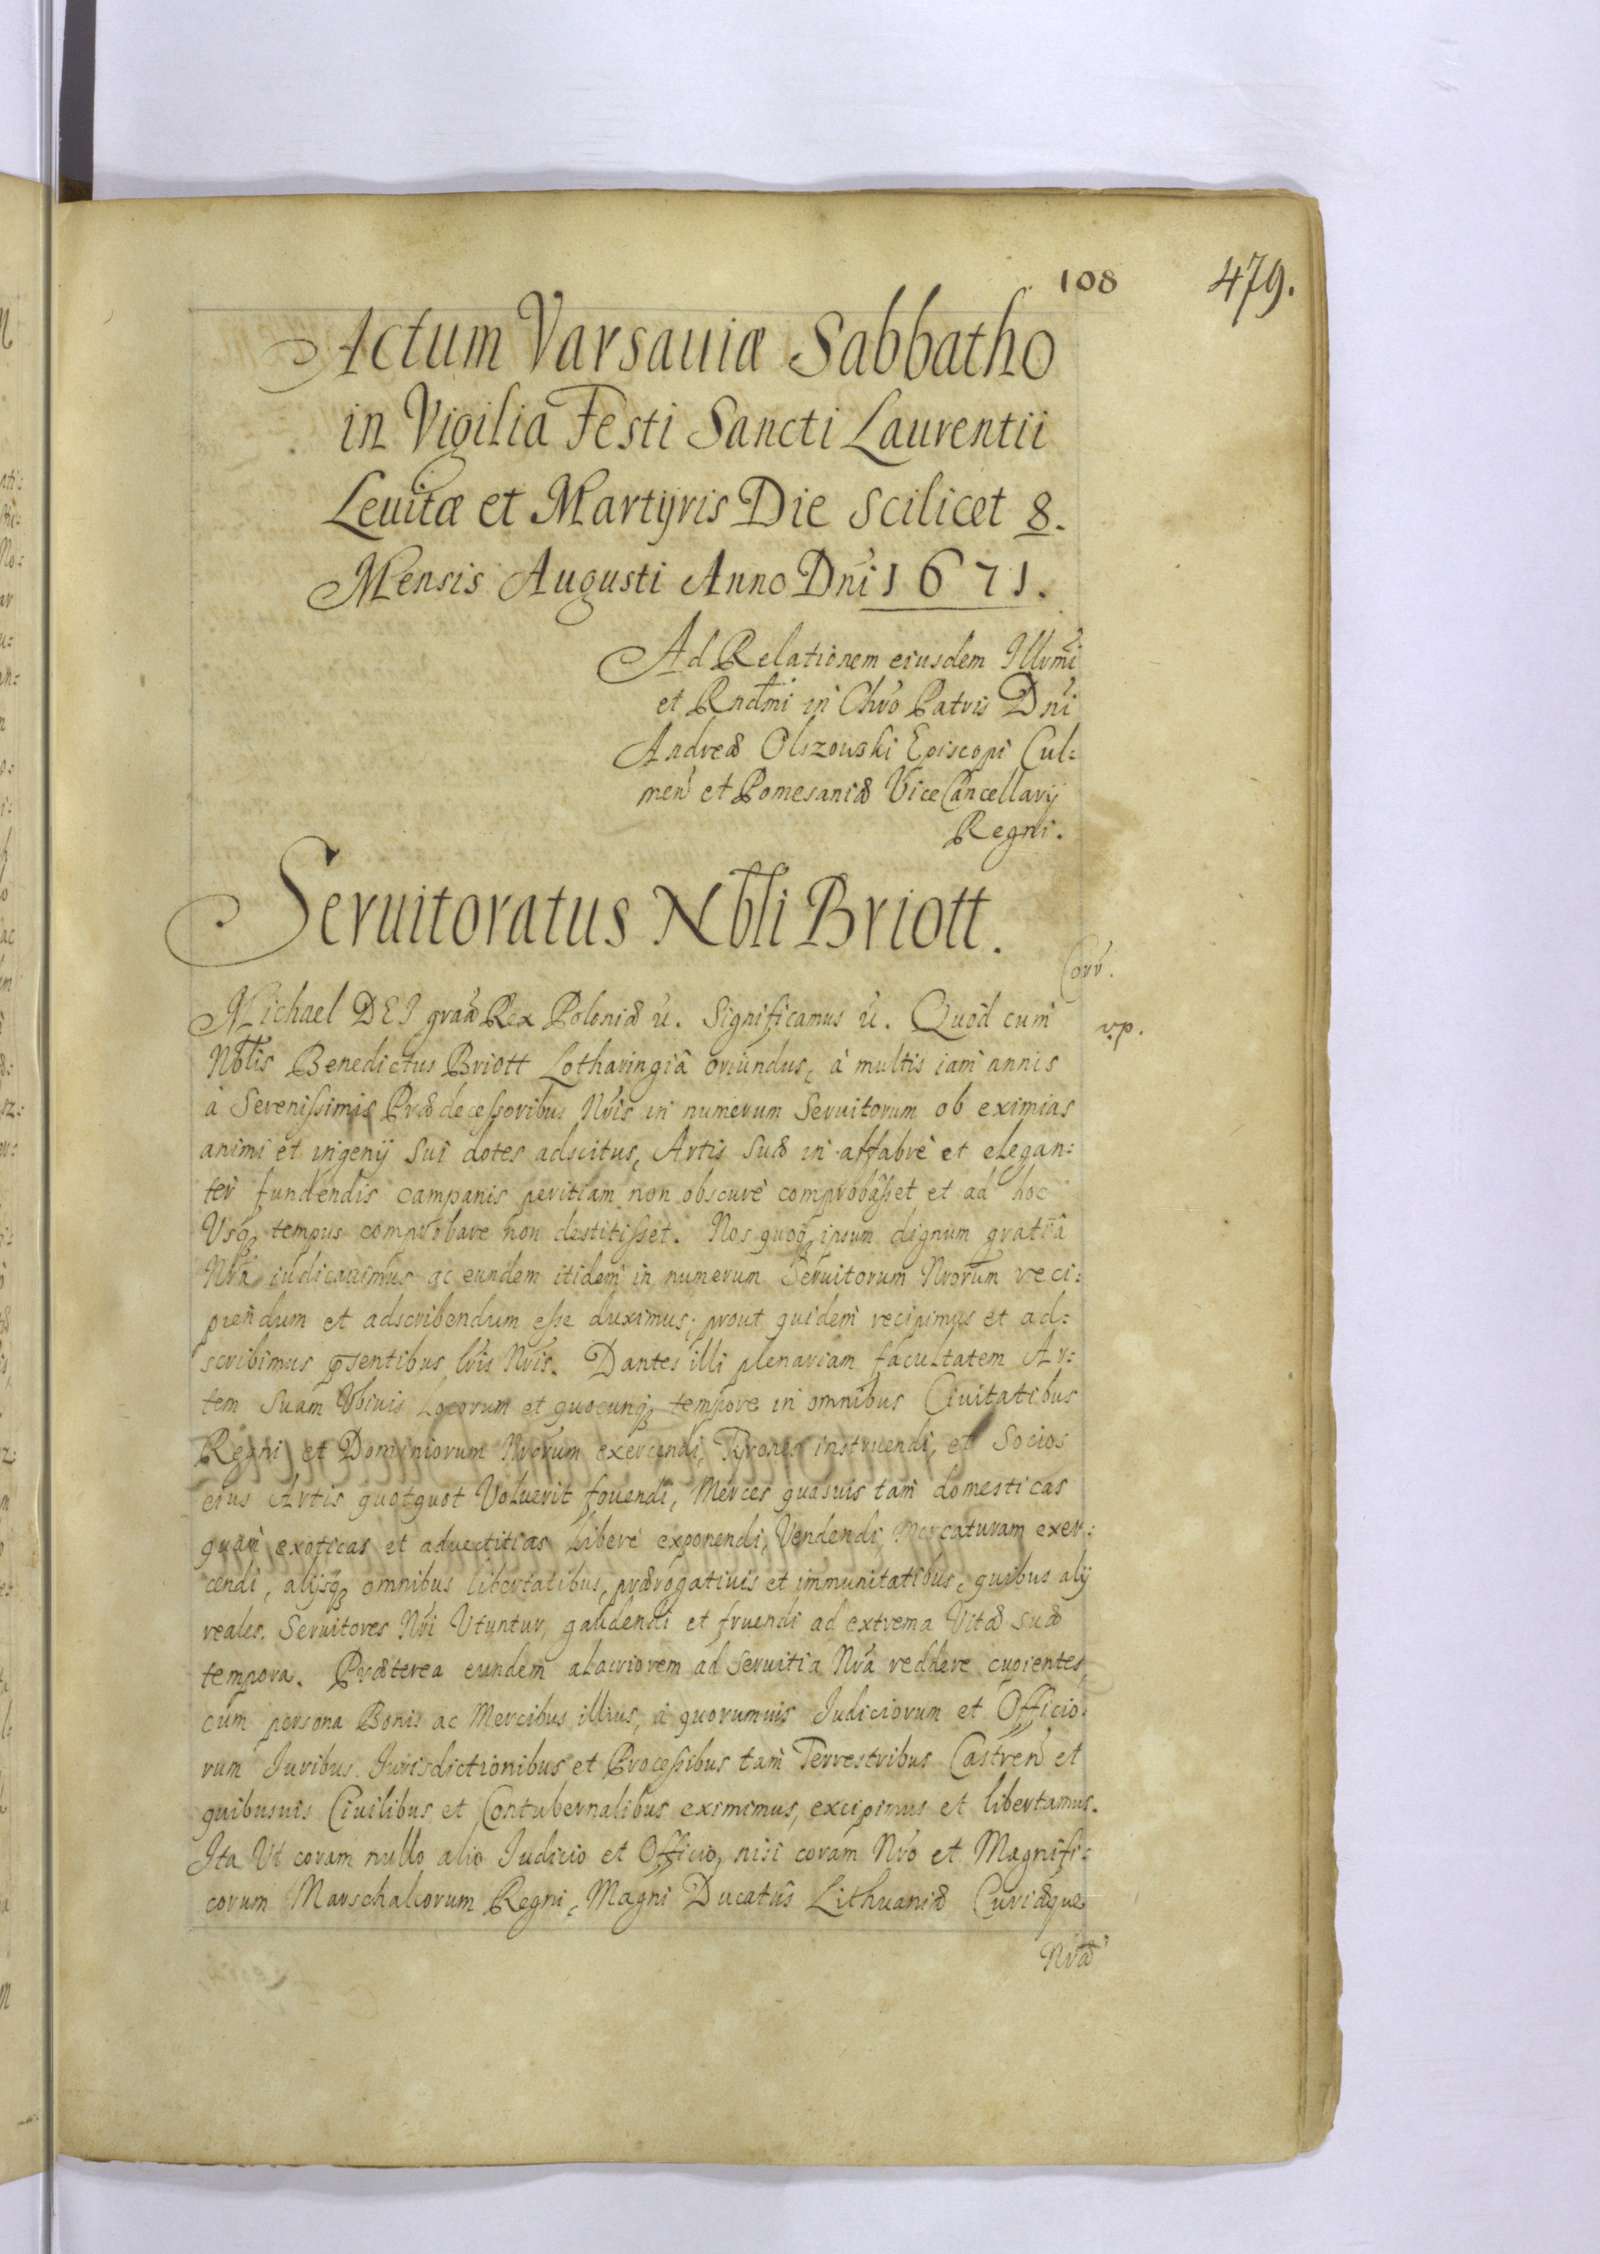 108
479.
Actum Varsauiæ Sabbatho
in Vigilia Festi Sancti Laurentii
Leuitæ et Martyris Die scilicet 8.
Mensis Augusti Anno Dni 1671.
Ad Relationem eiusdem Illvmi
et Rndmi in Chro Patris Dni
Andreæ Olszouski Episcopi Cul:
men et Pomesaniæ ViceCancellarij
Regni.
Seruitoratus Nbli Briott.
Corr.
Michael DEI graã Rex Poloniæ ũ. Significamus ũ. Quod cum
v.p.
Nblis Benedictus Briott Lotharingiâ oriundus, à multis iam annis
à Serenissimis Prædecessoribus Nris in numerum Seruitorum ob eximias
animi et ingenij sui dotes adscitus, Artis suæ in affabrè et elegan:
ter fundendis campanis peritiam non obscurè comprobâsset et ad hoc
Usq tempus comprobare non destitisset. Nos quoq ipsum dignum gratiâ
Nrâ iudicauimus ac eundem itidem in numerum Seruitorum Nrorum reci:
piendum et adscribendum esse duximus; prout quidem recipimus et ad:
scribimus pṡentibus lris Nris. Dantes illi plenariam facultatem Ar:
tem suam Vbiuis Locorum et quocunq tempore in omnibus Ciuitatibus
Regni et Dominiorum Nrorum exercendi, Tyrones instruendi, et Socios
eius Artis quotquot Voluerit fouendi, Merces quasuis tam domesticas
quam exoticas et aduectitias Liberè exponendi, Vendendi, Mercaturam exer:
cendi, alijsq omnibus libertatibus, prærogatiuis et immunitatibus, quibus alij
reales. Seruitores Nri Vtuntur, gaudendi et fruendi ad extrema Vitæ suæ
tempora. Præterea eundem alacriorem ad seruitia Nra reddere cupientes,
cum persona Bonis ac Mercibus illius, à quorumuis Judiciorum et Officio:
rum Juribus Jurisdictionibus et Processibus tam Terrestribus Castren et
quibusuis Ciuilibus et Contubernalibus eximimus, excipimus et libertamus.
Ita Vt coram nullo alio Judicio et Officio, nisi coram Nro et Magnifi:
corum Marschalcorum Regni, Magni Ducatûs Lithuaniæ Curiæque
Nræ